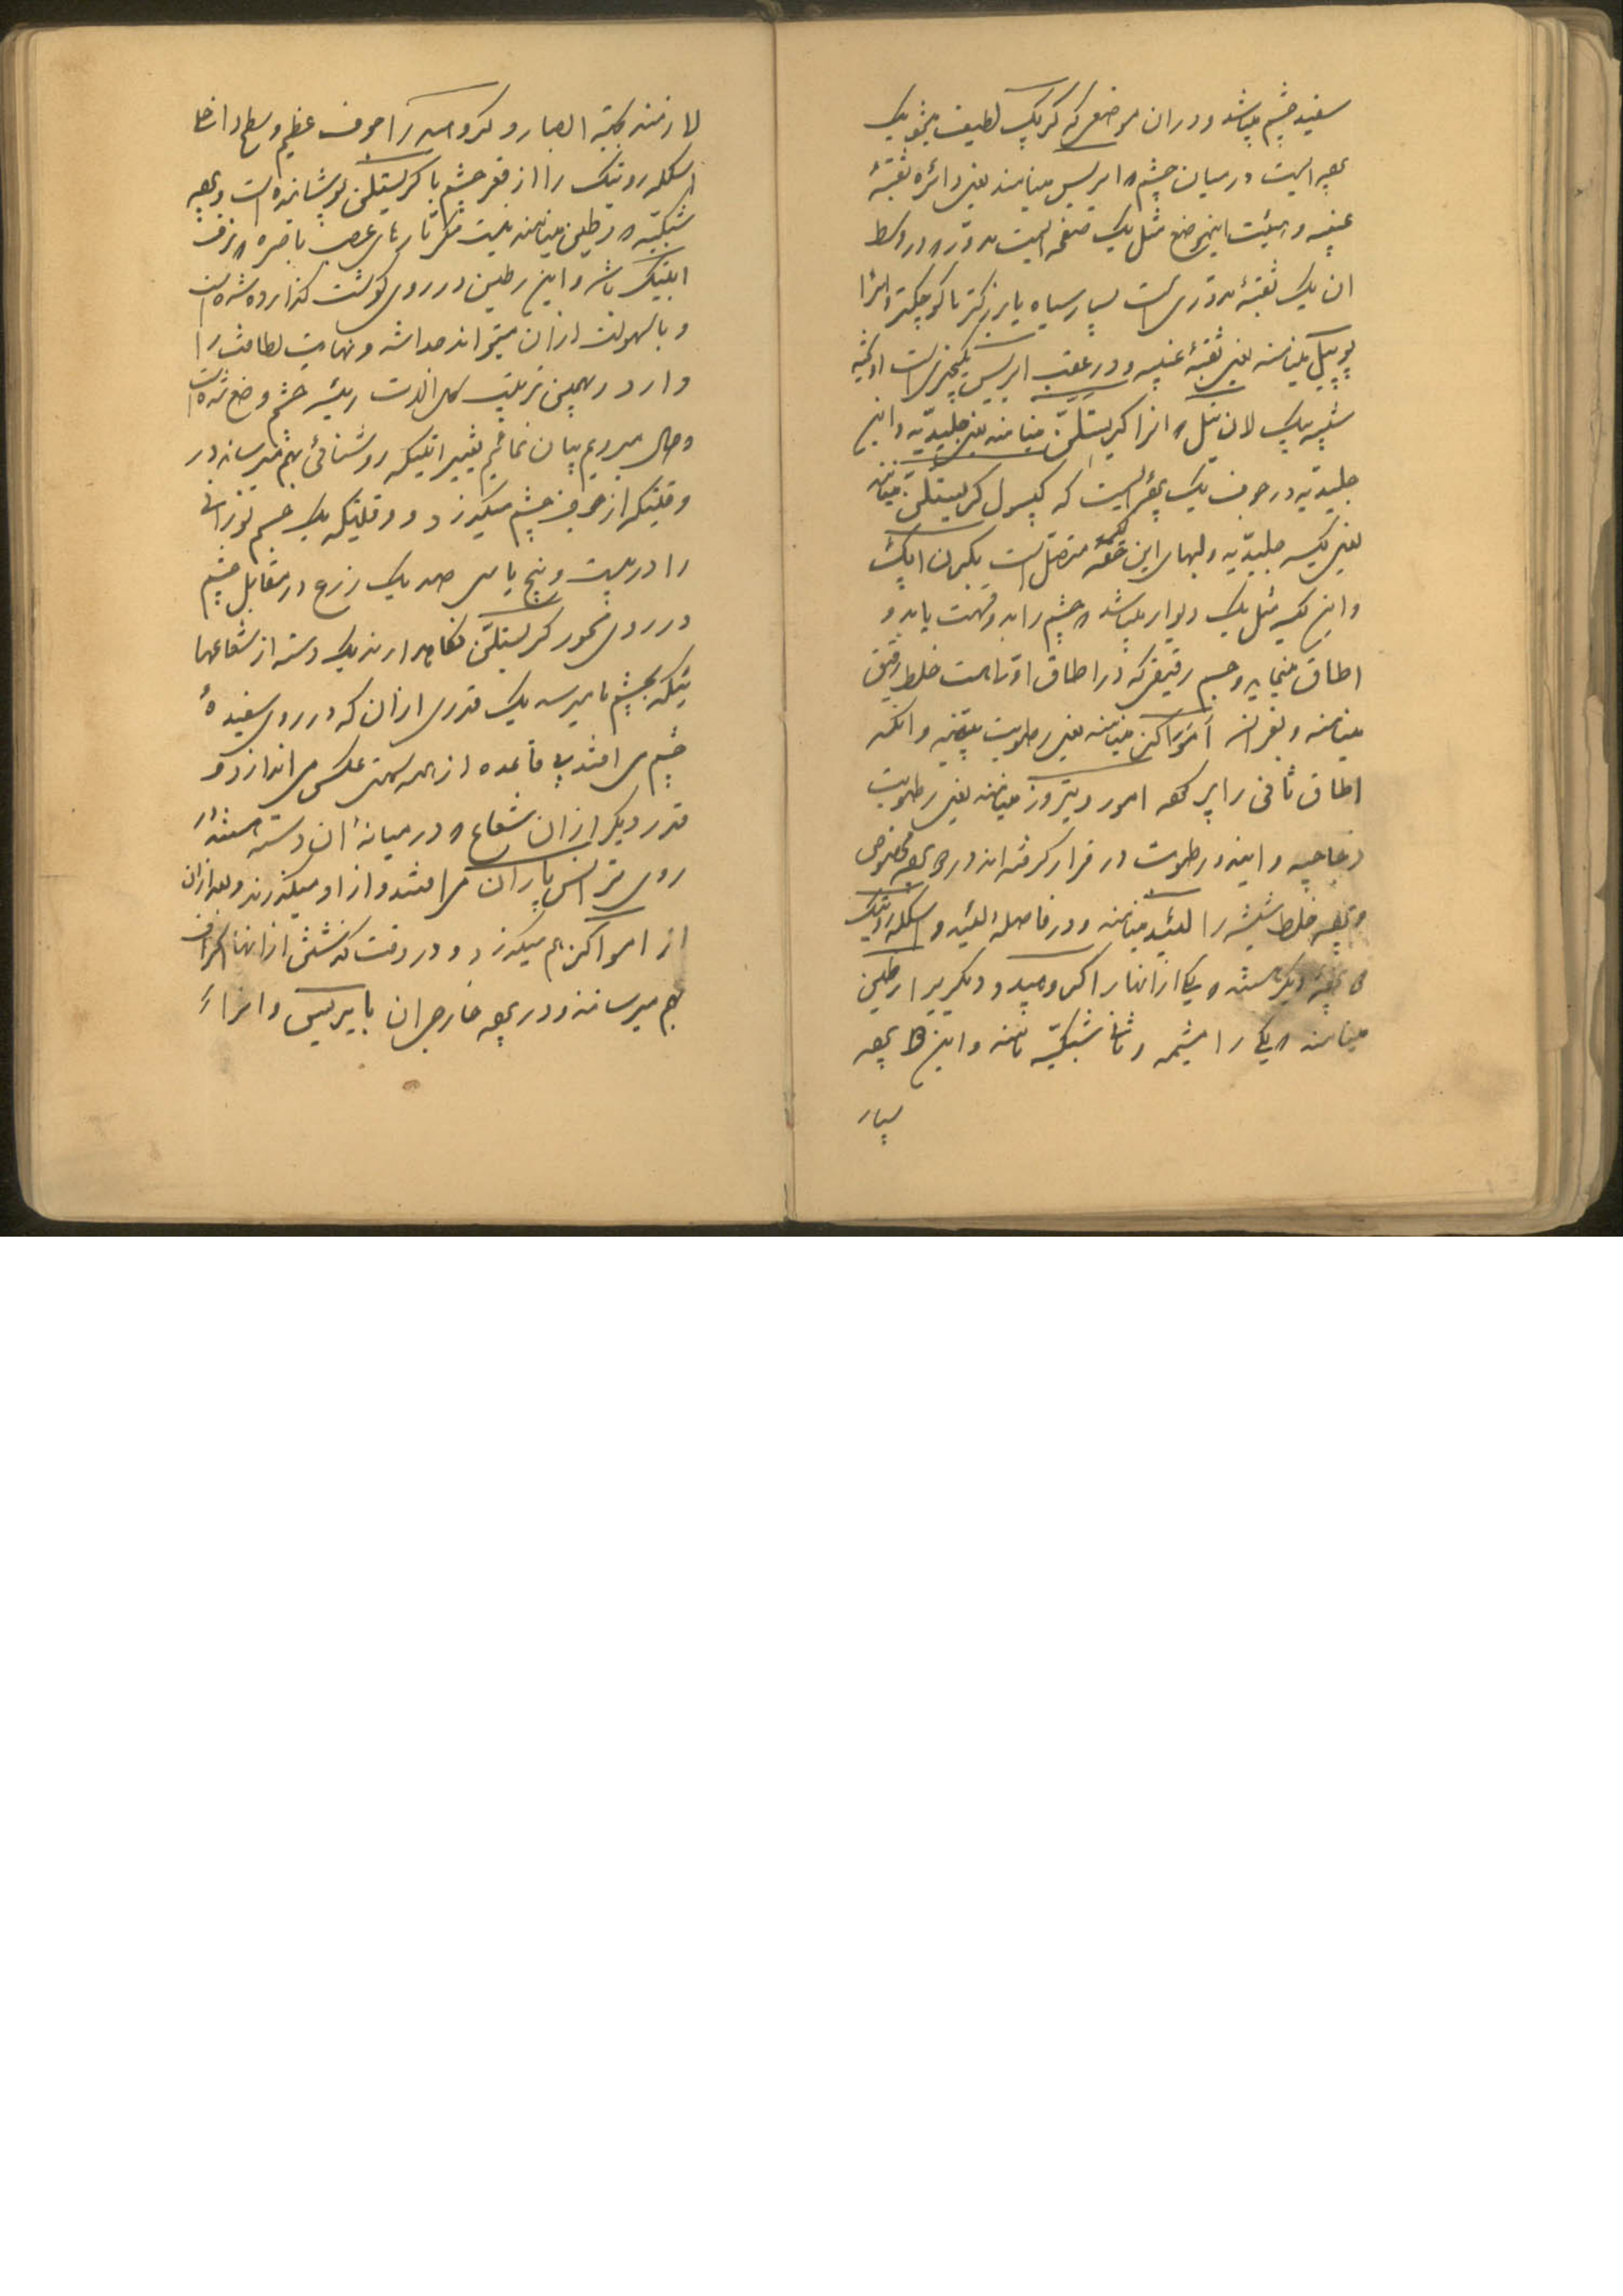 سفید چشم میباشد و در ان موضعی که گریک لطیف میشود یک
پرده ایست در میان چشم ایریس مینامند یعنی دائره ثقبهٔ
عنبیه و هیئت اینموضع مثل یک صفحه ایست مدور در وسط
ان یک ثقبهٔ مدوری است بسیار سیاه یا بزرگتر یا کوچکتر و انرا
پوپیل مینامند یعنی ثقبهٔ عنبیه و در عقب ایریس یکچیزی است
شبیه بیک لان تیل انرا کریستلن مینامند یعنی جلیدیه و این
جلیدیه در جوف یک پرده ایست که کپسول کریستلن مینامند
یعنی کیسه جلیدیه و لبهای این متصل است بکبرن اپک
و این کیسه مثل یک دیوار میباشد چشم را به دو قسمت یا به دو
اطاق مینماید و جسم رقیقی که در اطاق اول است خلط رقیق
مینامند و بفرانسه اموراکز مینامند یعنی رطوبت بیضیه و انکه
اطاق ثانی را پر کرده امور ویتروز مینامند یعنی رطوبت
زجاجیه و این دو رطوبت در قرار گرفته اند در پرده مخصوص
پرده خلط شیشه را الوئید مینامند و در فاصله الوئید و اسکلروتیک
پرده دیگر هستند یکی از انها را کروئید و دیگریرا رطین
مینامند یکی را مشیمه و ثانی شبکیه نامند و این پرده
بسیار
لازمند بجهة ابصار و کروئید را جوف عظیم و سطح داخل
اسکلروتیک را از قعر چشم با کریستلن پوشانده است و پرده
شبکیه رطین مینامند نیست مگر تارهای عصب باصره نرف
اپتیک باشد و این رطین در روی کوشت گذارده شده است
و بسهولت از ان میتواند جدا شد و نهایت لطافت را
دارد بهمین ترتیب کل الات ریشه چشم وضع شده است
و حال میرویم بیان نمائیم تغییراتیکه روشنائی بهم میرساند در
وقتیکه از جوف چشم میگذرد و وقتیکه یک جسم نورانی
را در بیست و پنج یا سی صد یک ذرع در مقابل چشم
در روی محور کریستلن نگاه دارند یک دسته از شعاعها
ئیکه بچشم ما میرسد یک قدری از ان که در روی سفیدهٔ
چشم می افتد بی قاعده از همه سمت عکس می اندازد و
قدر دیگر از ان شعاع در میانهٔ ان دسته هستند
روی ترانس پاران می افتند و از او میگذرند و بعد از ان
از امواکز هم میگذرد و در وقت گذشتن از انها انکراف
بهم میرسانند و در پرده خارجی ان با ایریس و انرا